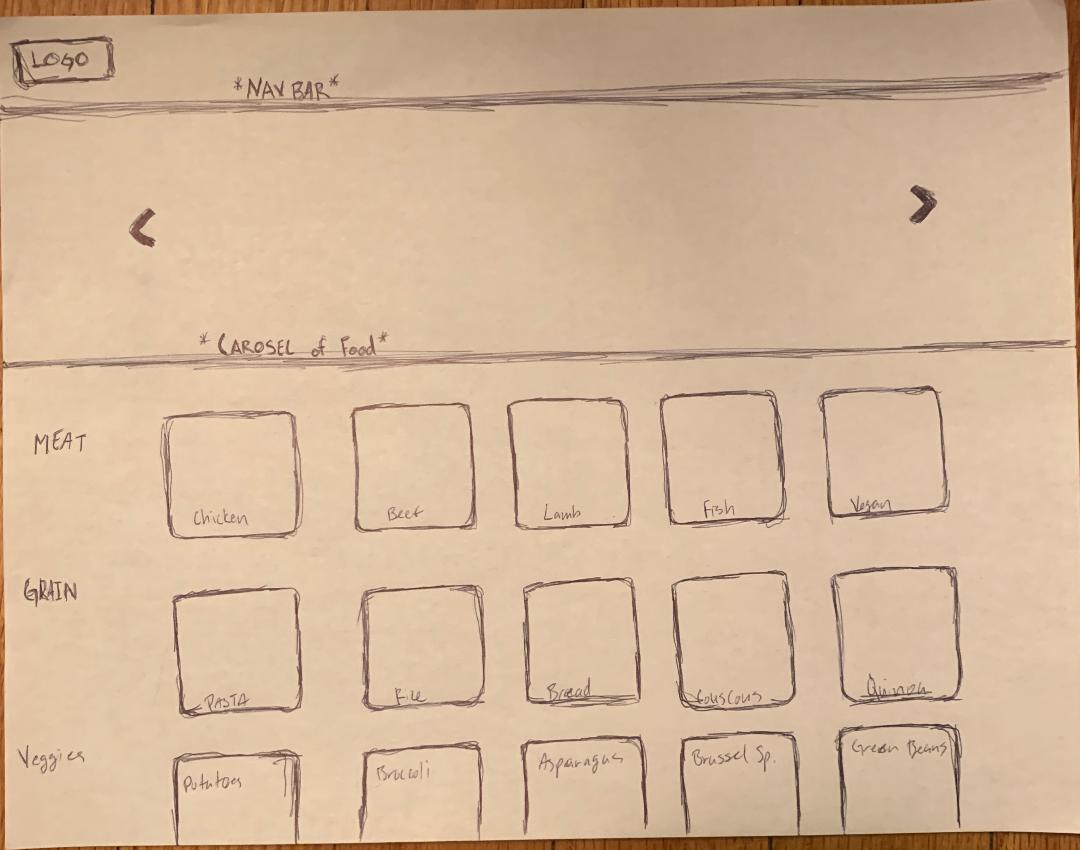 LOGO
*NAV BAR*
*CAROSEL of Food*
MEAT
Chicken
Beef
Lamb
Fish
Vegan
GRAIN
PASTA
Rice
Bread
Couscous
Quinoa
Veggies
Potatoes
Broccoli
Asparagus
Brussel Sp.
Green Beans